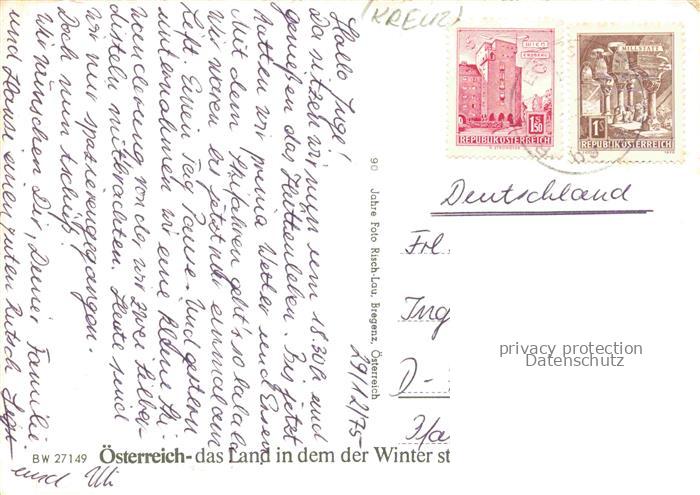 (KREUZ)
Hallo Inge!
Da sitzen wir nun um 18.30 h und
genießen das Hüttenleben. Bis jetzt
hatten wir prima Wetter und Essen
Mit dem Skifahren geht's so lala
Wir waren bis jetzt nur einmal am
Lift. Einen Tag Pause. Und gestern
unternahmen wir eine kleine Ski-
wanderung, von der wir zwei Silber-
disteln mitbrachten. Heute sind
wir nur spazierengegangen.
Doch nun tschüß!
Wir wünschen Dir, Deiner Familie
und Hansi einen guten Rutsch
und Uli
29/12/75
90 Jahre Foto Risch-Lau, Bregenz, Österreich
WIEN
ERDBERG
1.50
REPUBLIK ÖSTERREICH
MILLSTATT
1 S
REPUBLIK ÖSTERREICH
Deutschland
Frl.
Ing
D-
privacy protection
Datenschutz
BW 27149 Österreich - das Land in dem der Winter st